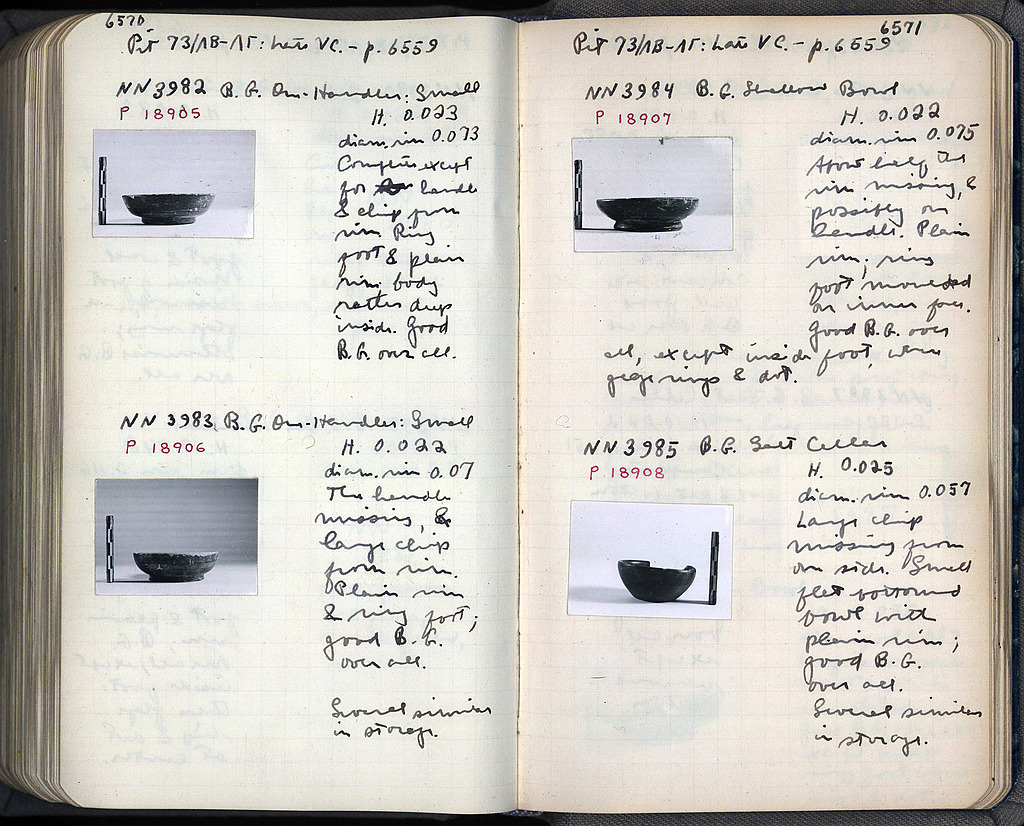 6570
Pit 73/ΛΒ-ΛΓ: Late VC. - p. 6559
NN 3982 B.G. One-Handler: Small
P 18905 H. 0.023
diam. rim 0.073
Complete except
for handle
& chip from
rim. Ring
foot & plain
rim; body
rather deep
inside. Good
B.G. over all.
NN 3983 B.G. One-Handler: Small
P 18906 H. 0.022
diam. rim 0.07
The handle
missing, &
large chip
from rim.
Plain rim
& ring foot;
good B.G.
over all.
Several similar
in storage.
6571
Pit 73/ΛΒ-ΛΓ: Late VC. - p. 6559
NN 3984 B.G. Shallow Bowl
P 18907 H. 0.022
diam. rim 0.075
About half the
rim missing, &
possibly one
handle. Plain
rim; ring
foot moulded
on inner face.
Good B.G. over
all, except inside foot, where
glaze rings & dot.
NN 3985 B.G. Salt Cellar
P 18908 H. 0.025
diam. rim 0.057
Large chip
missing from
one side. Small
flat bottomed
bowl with
plain rim;
good B.G.
over all.
Several similar
in storage.